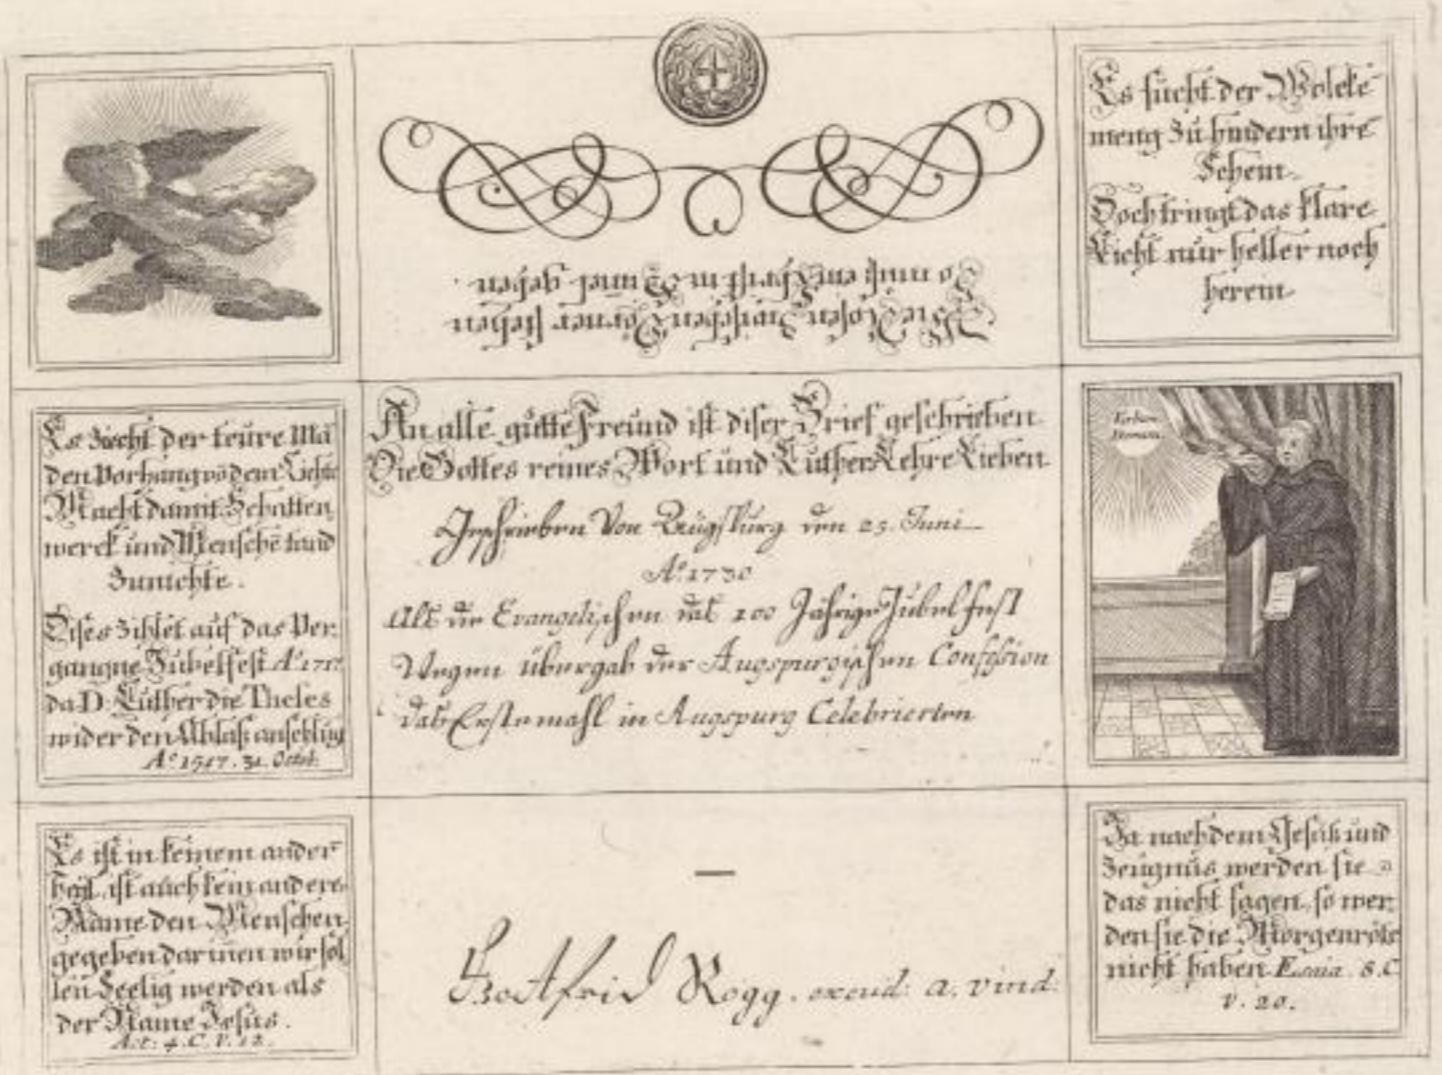 Es sucht der Wolcke
meng zu hindern ihre
Schein.
Doch tringt das klare
Licht nur heller noch
herein
Wie Rosen zwischen Dörner stehen
So muß ein Christ in Himel gehen.
Es ziecht der teure Mā
den Vorhang vō dem Lichte
Macht damit Schatten
werck und Menschē tand
Zunichte.
Dises zihlet auf das Ver:
gangne Jubelfest Aº 1717
da D. Luther die Theses
wider den Ablaß anschlug
Aº 1517. 31. Octob.
An alle gutte Freund ist diser Brief geschrieben
Die Gottes reines Wort und Luthers Lehre Lieben
Geschrieben Von Augspurg den 25. Juni
Aº 1730
Als die Evangelischen das 200 Jährige Jubelfest
Wegen übergab der Augspurgischen Confession
das Erstemahl in Augspurg Celebrierten
Verbum
Es ist in keinem ander
heil, ist auch kein andere
Name den Menschen
gegeben darinnen wir sol
len Seelig werden als
der Name Jesus.
Act: 4. C. V. 12.
Gottfrid Rogg. excud: a. vind:
Ja nach dem Gesäß und
Zeugnus werden sie
das nicht sagen, so wer
den sie die Morgenröte
nicht haben Esaia. 8. C
v. 20.